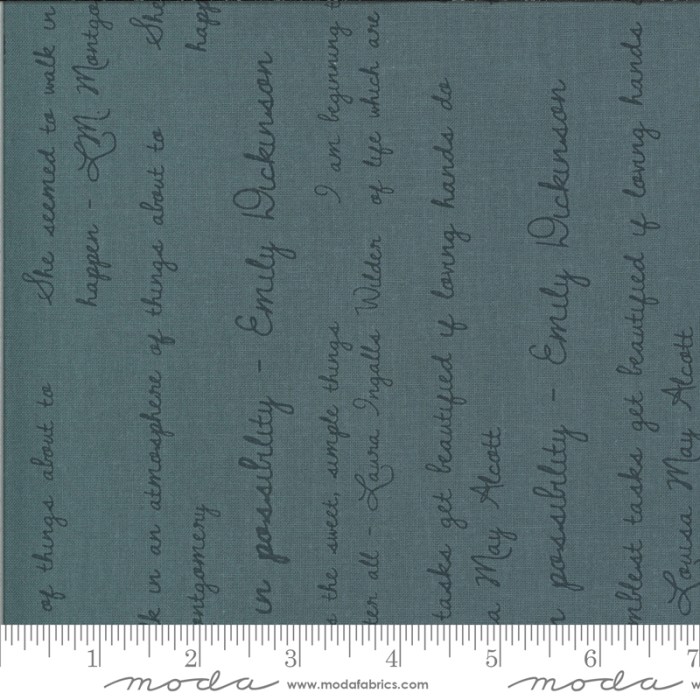 of things about to She seemed to walk in
happen - L.M. Montgo
k in an atmosphere of things about to She
ontgomery happ
in possibility - Emily Dickinson
s the sweet, simple things I am beginning t
ter all - Laura Ingalls Wilder of life which are
tasks get beautified if loving hands do
a May Alcott
n possibility - Emily Dickinson
mblest tasks get beautified if loving hands
Louisa May Alcott
1 2 3 4 5 6 7
moda www.modafabrics.com moda w